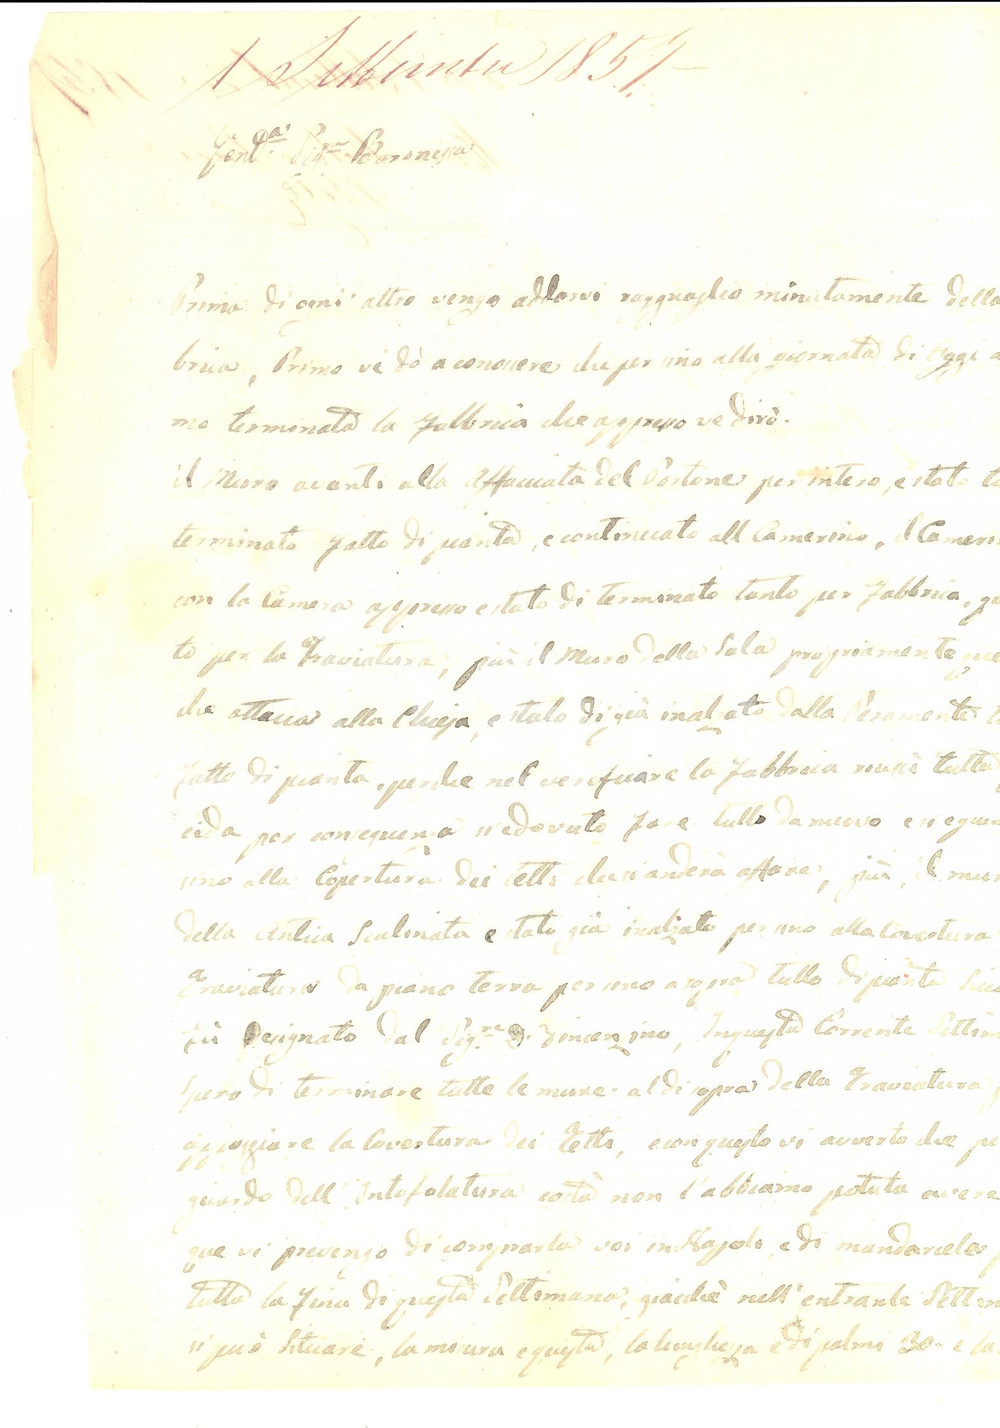 1 Settembre 1857
Gent.ma Sig.ra Baronessa
Prima di ogni altro vengo addarvi ragguaglio minutamente della
brica, Primo vi dò a conoscere che per sino alla giornata di Oggi a
mo terminata la Fabbrica che appresso ve dirò.
il Muro avanti alla Affacciata del Portone per intero, e stato
terminato fatto di pianta, e continuato all Camerino, il Camerin
con la Camera appresso e stato di terminato tanto per Fabbrica, qu
to per la Traviatura, più il Muro della Sala propriamente que
che attacca alla Chieja, e stato di già inalzato dalla
fatto di pianta, perche nel verificare la Fabbrica tutta
cida per conseguenza si e dovuto fare tutto da nuovo e si eguir
sino alla Copertura dei tetti che si anderà affare, più, il mur
della Antica Scalinata e stato già inalzato per sino alla Covertura
Traviatura da piano terra per sino a sopra tutto di pianta
fù Designato dal Sig.re D. Vincenzino, In questa Corrente Settim
spero di terminare tutte le mure al di sopra della Traviatura
appoggiare la Covertura dei Tetti, e con questo vi avverto che pe
guardo dell'Intofolatura costà non l'abbiamo potuta avere
que vi prevengo di comprarla voi in Napoli, e di mandarcela
tutta la fine di questa Settimana, giacchè nell'entrante Settim
si può situare, la misura e questa, la lunghezza e di palmi 30. e la